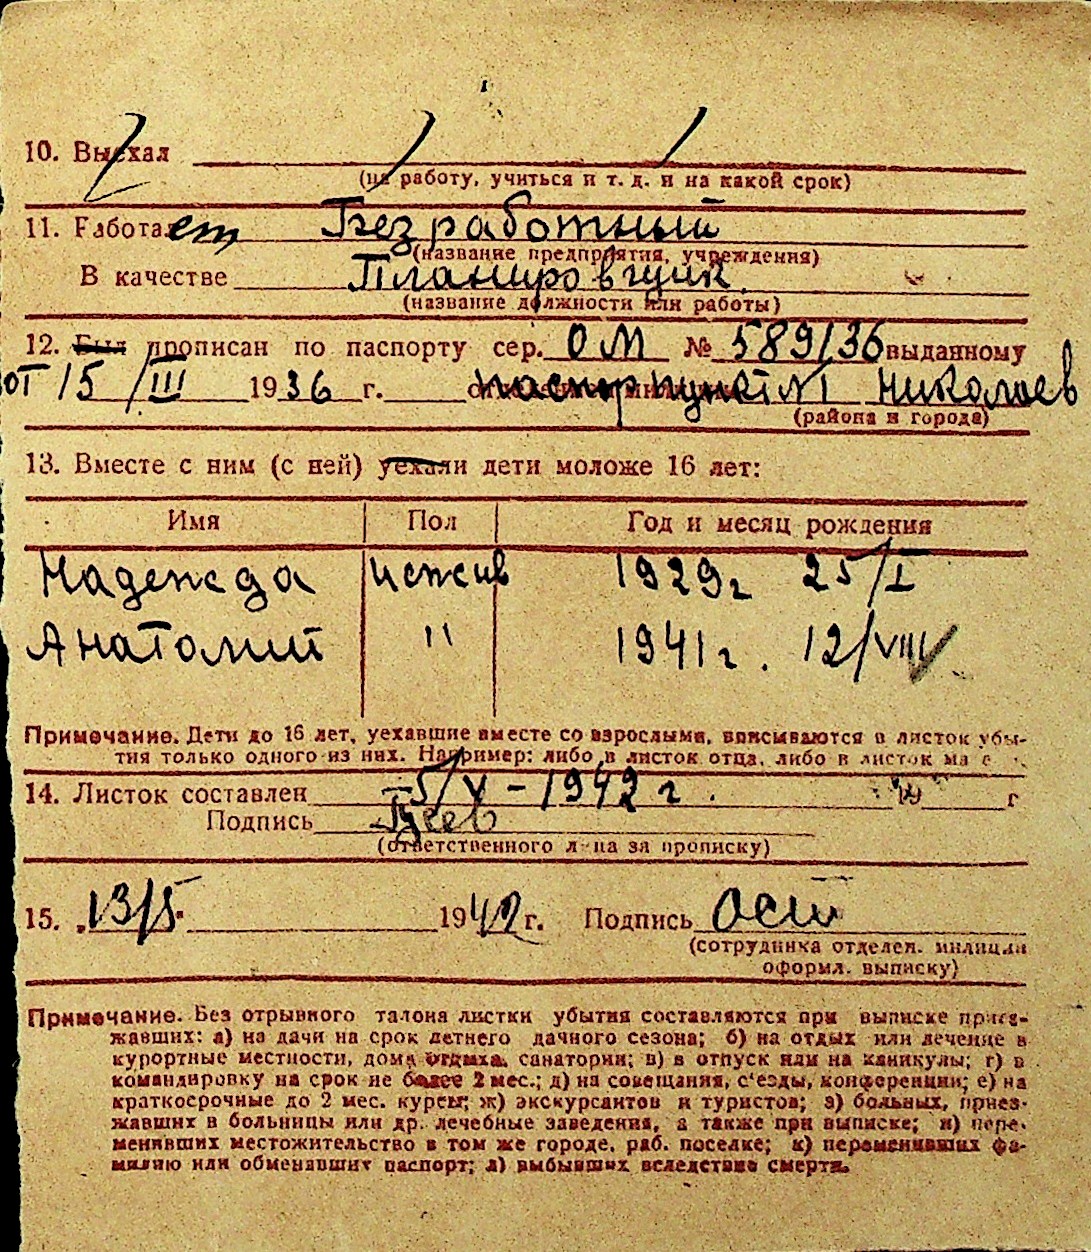 10. Выехал
(на работу, учиться и т. д. и на какой срок)
11. Работает Безработный
(название предприятия, учреждения)
В качестве Планировщик.
(название должности или работы)
12. Был прописан по паспорту сер. ОМ № 589136 выданному
от 15/III 1936 г. паспорт пункт №1 Николаев
(района и города)
13. Вместе с ним (с ней) уехали дети моложе 16 лет:
Имя Пол Год и месяц рождения
Надежда 1929г 25/I
Анатолий " 1941г. 12/VIII
Примечание. Дети до 16 лет, уехавшие вместе со взрослыми, вписываются в листок убы-
тия только одного из них. Например: либо в листок отца, либо в листок
14. Листок составлен 5/V-1942г. 19 г
Подпись
(ответственного лица за прописку)
15. 13/5. 1942 г. Подпись
(сотрудника отделен. милиции
оформл. выписку)
Примечание. Без отрывного талона листки убытия составляются при выписке приез-
жавших: а) на дачи на срок летнего дачного сезона; б) на отдых или лечение в
курортные местности, дома отдыха, санатории; в) в отпуск или на каникулы; г) в
командировку на срок не более 2 мес.; д) на совещания, с'езды, конференции; е) на
краткосрочные до 2 мес. курсы; ж) экскурсантов и туристов; з) больных, приез-
жавших в больницы или др. лечебные заведения, а также при выписке; и) пере-
менивших местожительство в том же городе, раб. поселке; к) переменивших фа-
милию или обменявших паспорт; л) выбывших вследствие смерти.